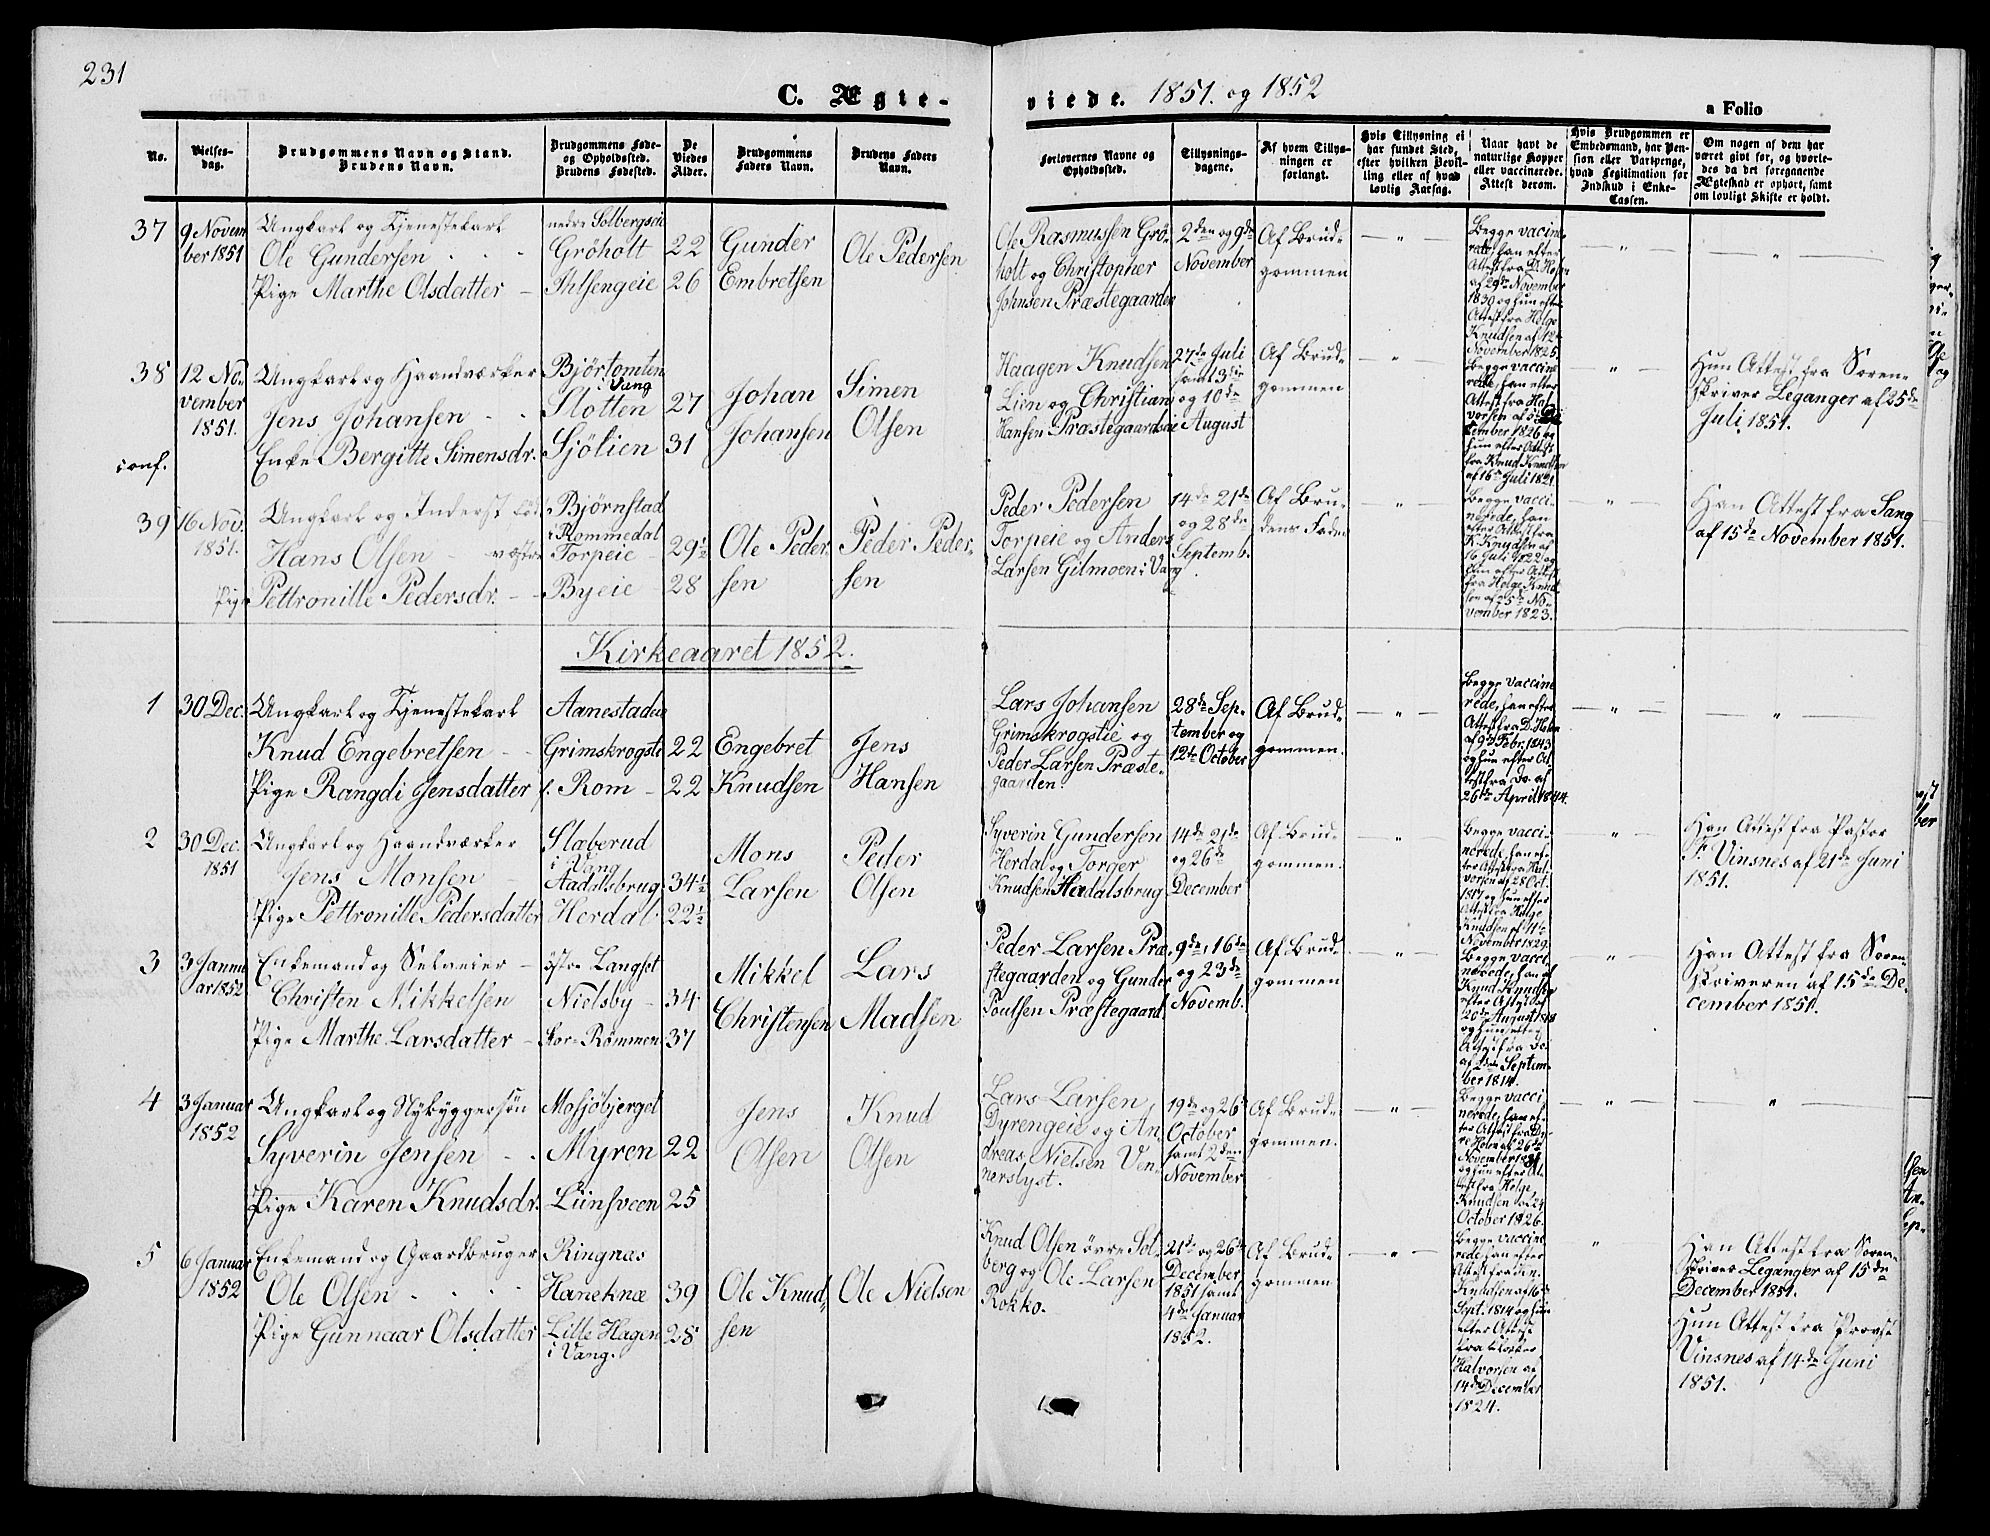 231
C. Ægte-
viede. 1851. og 1852
a Folio
No.
Vielses-
dag.
Brudgommens Navn og Stand.
Brudens Navn.
Brudgommens Føde-
og Opholdssted.
Brudens Fødested.
De
Viedes
Alder.
Brudgommens
Faders Navn.
Brudens Faders
Navn.
Forlovernes Navne og
Opholdssted.
Tillysnings-
dagene.
Af hvem Tillys-
ningen er
forlangt.
Hvis Tillysning ei
har fundet Sted,
efter hvilken Bevil-
ling eller af hvad
lovlig Aarsag.
Naar havt de
naturlige Kopper
eller vaccinerede.
Attest derom.
Hvis Brudgommen er
Embedsmand, har Pen-
sion eller Vartpenge,
hvad Legitimation for
Indskud i Enke-
Cassen.
Om nogen af dem har
været gift før, og hvorle-
des da det foregaaende
Ægteskab er ophørt, samt
om lovligt Skifte er holdt.
37
9 Novem
ber 1851
Ungkarl og Tjenestekarl
Ole Gundersen
Pige Marthe Olsdatter
nedre Solbergseie
Gröholt
Ihlsengeie
22
26
Gunder
Embretsen
Ole Pedersen
Ole Rasmussen Grö-
holt og Christopher
Johnsen Præstegaarden
2den og 9de
November
Af Brud-
gommen
Begge vaccine-
rede, han efter
Attest fra D. Holm
af 29de November
1830 og hun efter
Attest fra Helge
Knudsen af 12te
November 1825.
38
12 No-
vember
1851.
conf.
Ungkarl og Haandværker
Jens Johansen
Enke Bergitte Simensdr.
Björtomten
Vang
Slotten
Sjölien
27
31
Johan
Johansen
Simen
Olsen
Haagen Knudsen
Lien og Christian
Hansen Præstegaardseie
27de Juli
samt 3die
og 10de
August
Af Brud-
gommen
Begge vaccine
rede, han efter
Attest fra Hal-
vorsen af 5te De
cember 1826 og
hun efter Attest
fra Knud Knudsen
af 16de Juli 1821.
Hun Attest fra Soren-
skriver Leganger af 25de
Juli 1851.
39
16 Nov.
1851.
Ungkarl og Inderst
Hans Olsen
Pige Pettronille Pedersdr.
Björnstad
i Rommedal
Torpeie
Byeie
29½
28
Ole Peder
sen
Peder Peder-
sen
Peder Pedersen
Torpeie og Anders
Larsen Gilmoen i Vang
14de 21de
og 28de
Septemb.
Af Bru-
dens Fader
Begge vacci-
nerede, han
efter Attest fra
K. Knudsen af
16 Juli 1822 og
hun efter Attest
fra Helge Knud
sen af 25de No-
vember 1823.
Han Attest fra Sang
af 15de November 1851.
Kirkeaaret 1852.
1
30 Dec.
Ungkarl og Tjenestekarl
Knud Engebretsen
Pige Rangdi Jensdatter
Aanestadeie
Grimskrogstie
Rom
22
22
Engebret
Knudsen
Jens
Hansen
Lars Johansen
Grimskrogstie og
Peder Larsen Præste-
gaarden.
28de Sep-
tember og
12te October
Af Brud-
gommen.
Begge vaccine
rede, han efter
Attest fra D. Holm
af 9de Febr. 1843
og hun efter At-
test fra do. af
26de April 1844.
2
30 Dec.
1851
Ungkarl og Haandværker
Jens Monsen
Pige Pettronille Pedersdatter
Slæberud
i Vang
Aadalsbrug
Herdal
34½
22½
Mons
Larsen
Peder
Olsen
Syverin Gundersen
Herdal og Torger
Knudsen Aadalsbrug
14de 21de
og 26de
December
Af Brud-
gommen.
Begge vacci-
nerede, han ef-
ter Attest fra Hal-
vorsen af 28 Oct.
1817 og hun efter
Attest fra Helge
Knudsen af 11te
November 1829.
Han Attest fra Pastor
Fr. Vinsnes af 21de Juni
1851.
3
3 Janu
ar 1852
Enkemand og Selveier
Christen Mikkelsen
Pige Marthe Larsdatter
östre Langset
Nielsby
Stor-Römmen
34
37
Mikkel
Christensen
Lars
Madsen
Peder Larsen Præ-
stegaarden og Gunder
Poulsen Præstegaard.
9de, 16de
og 23de
Novemb.
Af Brud-
gommen
Begge vacci-
nerede, han af
Knud Knudsen
efter Attest af
20de August 1818
og hun efter
Attest fra do.
af 2den Septem-
ber 1814.
Han Attest fra Soren-
skriveren af 15de De-
cember 1851.
4
3 Januar
1852
Ungkarl og Nybyggersön
Syverin Jensen
Pige Karen Knudsdr.
Mosjöbjerget
Myren
Liinsveen
22
25
Jens
Olsen
Knud
Olsen
Lars Larsen
Dyrengeie og An-
dreas Nielsen Ven-
nerslyst.
19de og 26de
October
samt 2den
November
Af Brud-
gommen.
Begge vacci-
nerede, han ef-
ter Attest fra Dyr-
re Holm af 26de
November 1831
og hun efter At-
test fra Helge
Knudsen af 24
October 1826.
5
6 Januar
1852
Enkemand og Gaardbruger
Ole Olsen
Pige Gunnaar Olsdatter
Ringnæs
Haneknæ
Lille Hagen
i Vang.
39
28
Ole Knud-
sen
Ole Nielsen
Knud Olsen övre Sol-
berg og Ole Larsen
Rokko.
21de og 26de
December
1851 samt
4de Januar
1852.
Af Brud-
gommen
Begge vaccine
rede, han efter
Attest fra
Knudsen af 16de
Sept. 1814 og hun
efter Attest
fra Klokker
Halvorsen af
14de December
1824.
Han Attest fra Soren-
skriver Leganger af 15de
December 1851.
Hun Attest fra Provst
Vinsnes af 14de Juni
1851.